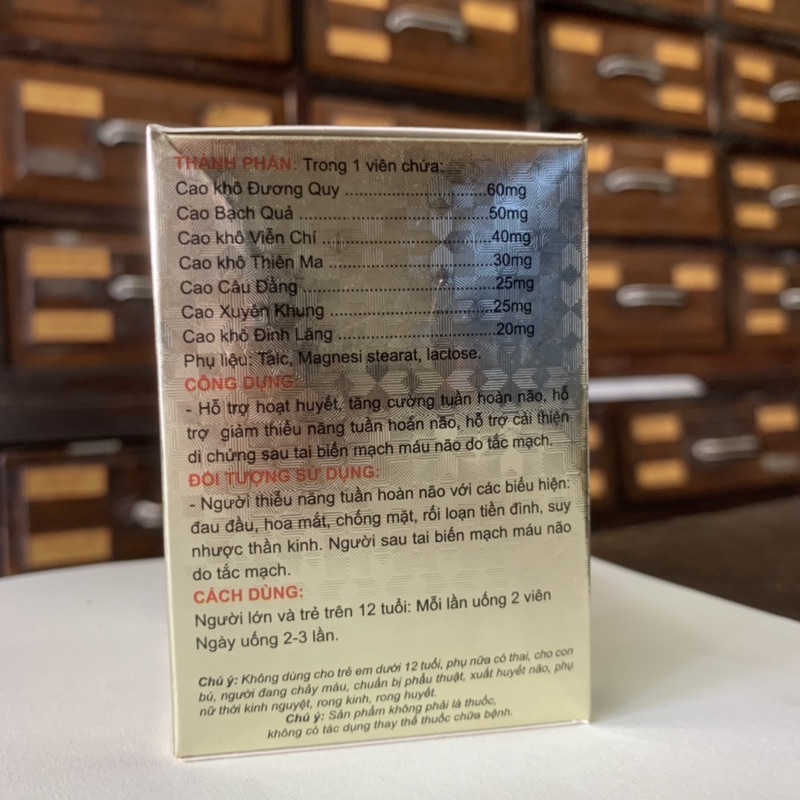 THÀNH PHẦN: Trong 1 viên chứa:
Cao khô Đương Quy ........................60mg
Cao Bạch Quả ................................50mg
Cao khô Viễn Chí .............................40mg
Cao khô Thiên Ma ............................30mg
Cao Câu Đằng .................................25mg
Cao Xuyên Khung ............................25mg
Cao khô Đinh Lăng ...........................20mg
Phụ liệu: Talc, Magnesi stearat, lactose.
CÔNG DỤNG:
- Hỗ trợ hoạt huyết, tăng cường tuần hoàn não, hỗ
trợ giảm thiểu năng tuần hoàn não, hỗ trợ cải thiện
di chứng sau tai biến mạch máu não do tắc mạch.
ĐỐI TƯỢNG SỬ DỤNG:
- Người thiểu năng tuần hoàn não với các biểu hiện:
đau đầu, hoa mắt, chống mặt, rối loạn tiền đình, suy
nhược thần kinh. Người sau tai biến mạch máu não
do tắc mạch.
CÁCH DÙNG:
Người lớn và trẻ trên 12 tuổi: Mỗi lần uống 2 viên
Ngày uống 2-3 lần.
Chú ý: Không dùng cho trẻ em dưới 12 tuổi, phụ nữa có thai, cho con
bú, người đang chảy máu, chuẩn bị phẩu thuật, xuất huyết não, phụ
nữ thời kinh nguyệt, rong kinh, rong huyết.
Chú ý: Sản phẩm không phải là thuốc,
không có tác dụng thay thế thuốc chữa bệnh.